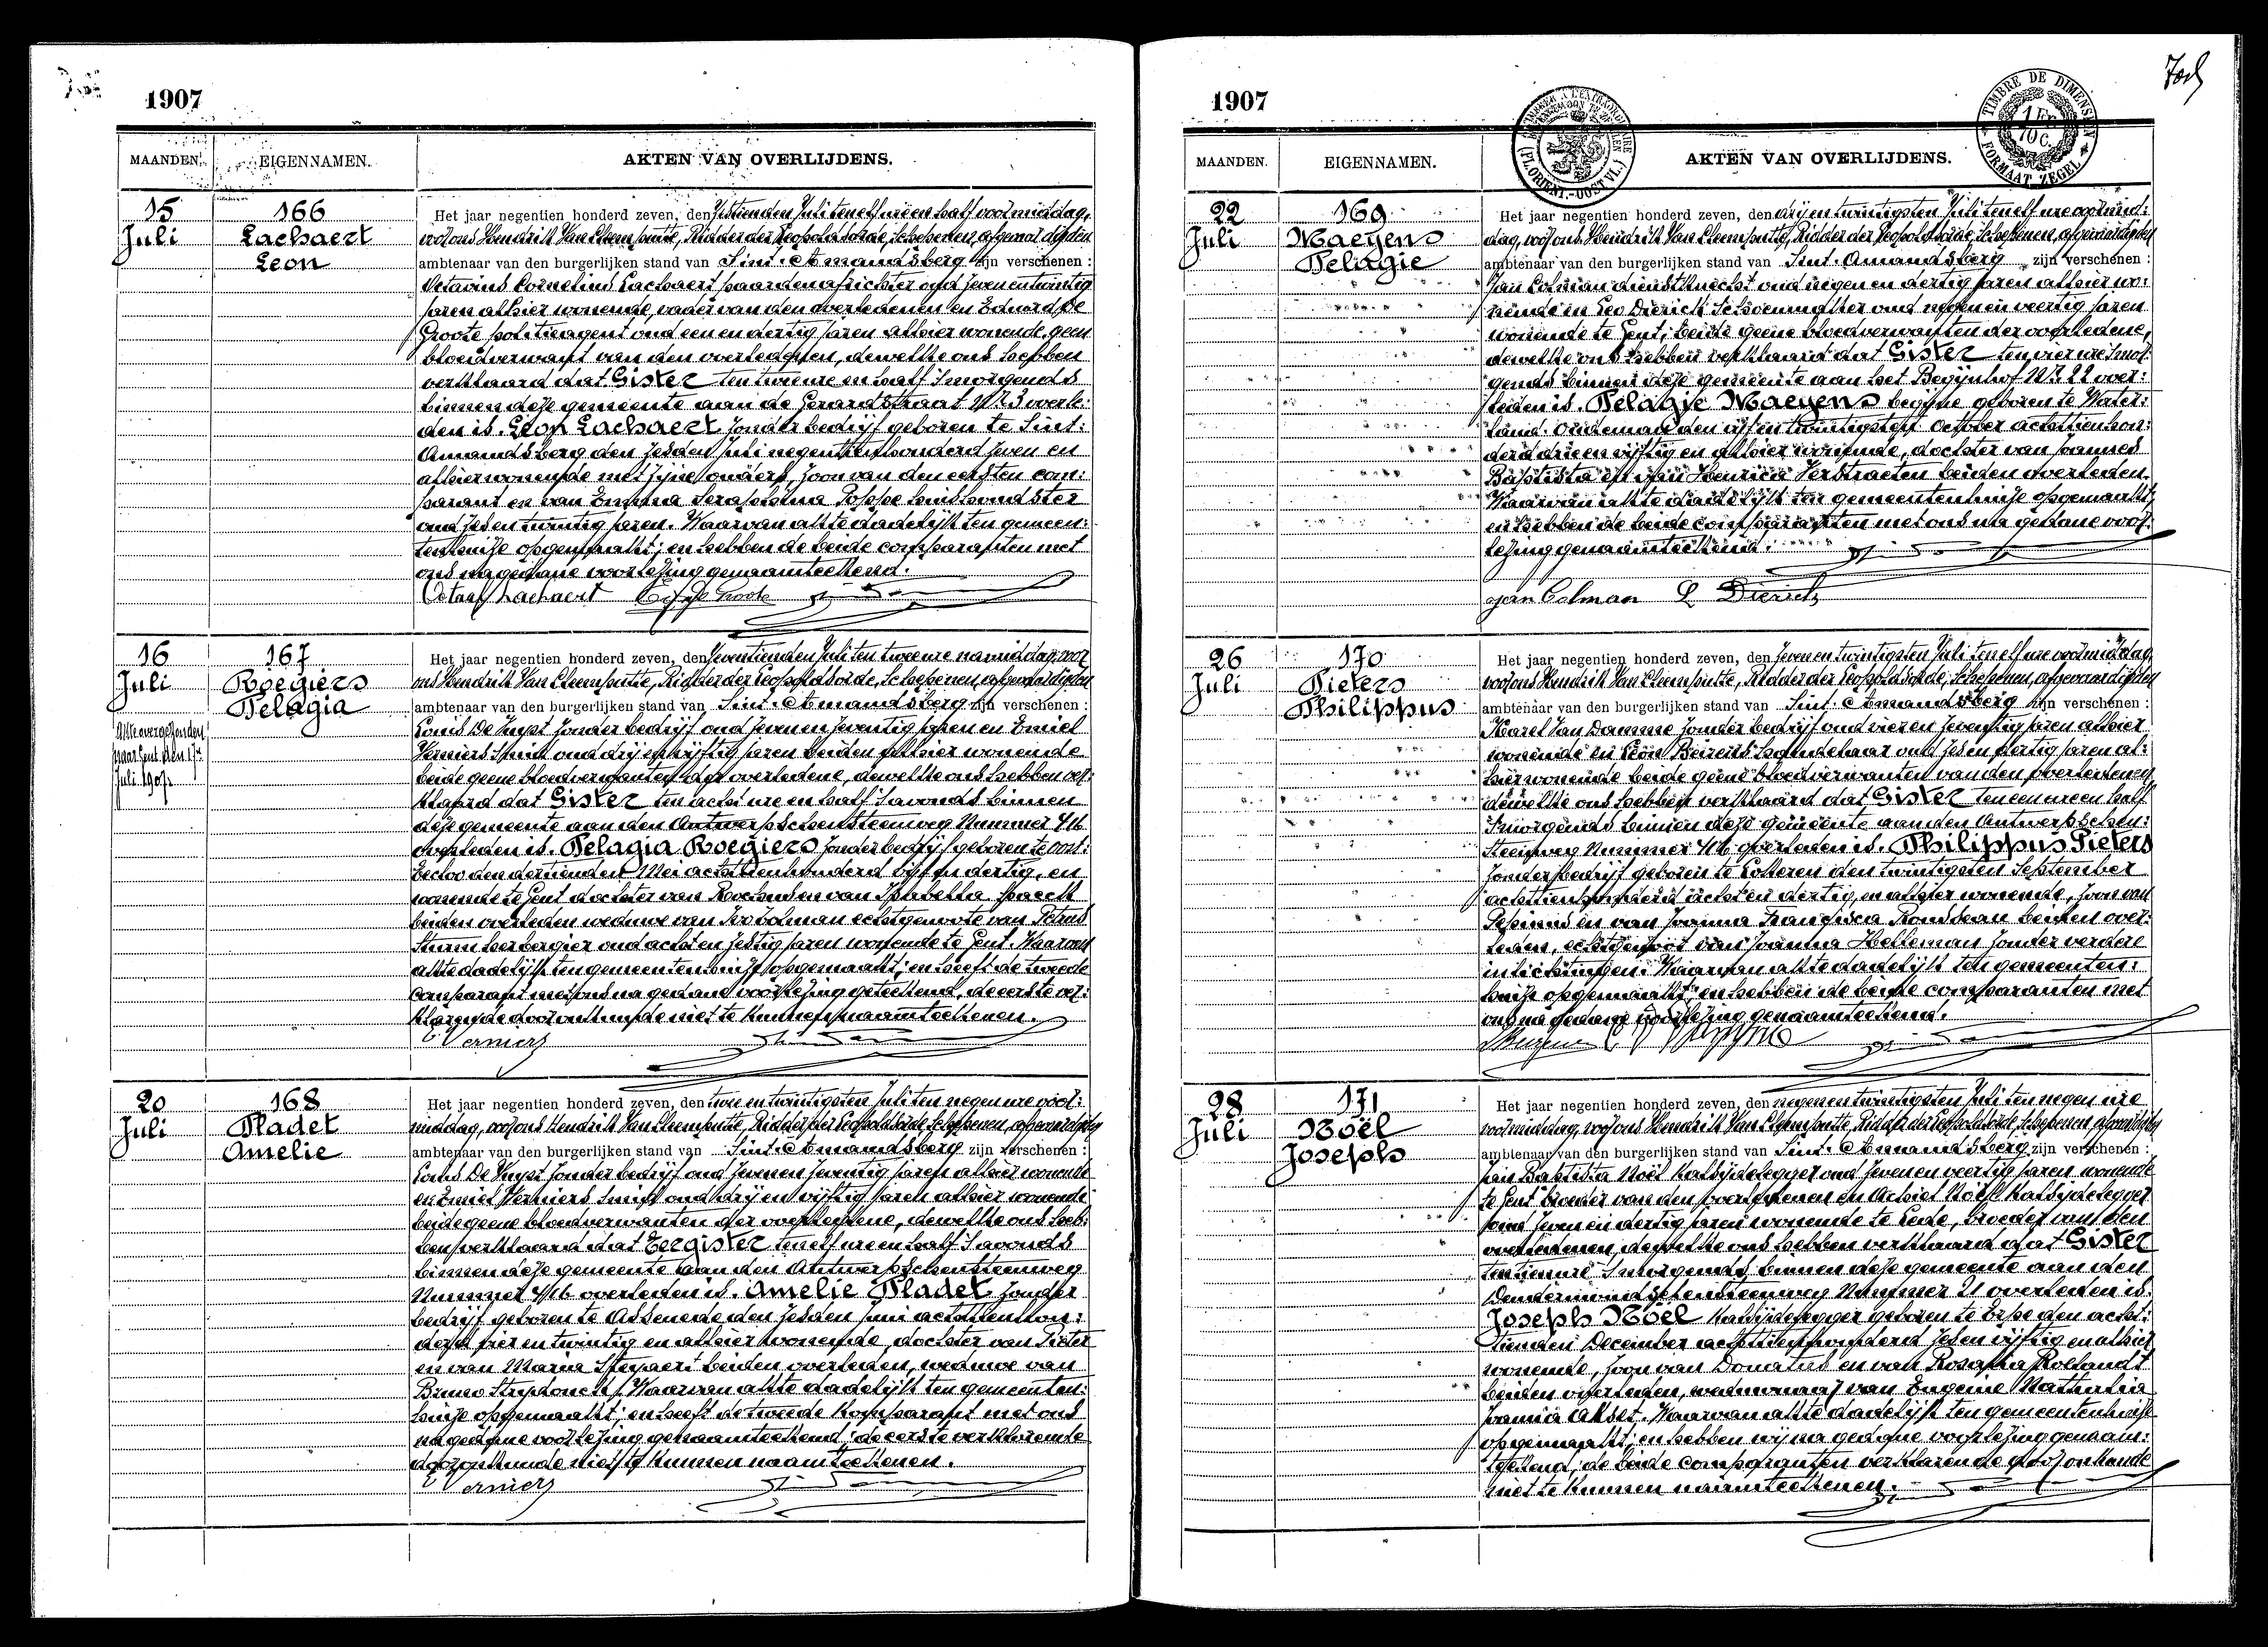 1907
MAANDEN. EIGENNAMEN. AKTEN VAN OVERLIJDENS.
15 Juli
166
Lachaert
Leon
Het jaar negentien honderd zeven, den zestienden Juli ten elf ure en half voormiddag,
voor ons Hendrik Van Cleemputte, Ridder der Leopoldsorde, Schepenen, afgevaardigden
ambtenaar van den burgerlijken stand van Sint-Amandsberg zijn verschenen :
Octavius Cornelius Lachaert paardenafrichter oud zeven en twintig
jaren alhier wonende, vader van den overledenen en Eduard De
Groote politieagent oud een en dertig jaren alhier wonende geen
bloedverwant van den overledenen, dewelke ons hebben
verklaard dat Gister ten twee ure en half 'smorgends
binnen deze gemeente aan de Gerardstraat Nr. 3 overle:
den is. Leon Lachaert zonder bedrijf geboren te Sint:
Amandsberg den zesden Juli negentienhonderd zeven en
alhier wonende met zijne ouders, zoon van den eersten com:
parant en van Emma Seraphina Poppe huishoudster
oud zes en twintig jaren. Waarvan akte dadelijk ten gemeen:
tenhuize opgemaakt; en hebben de beide comparanten met
ons na gedane voorlezing genaamteekend.
Octaaf Lachaert
16 Juli
167
Roegiers
Pelagia
Akte overgezonden
naar Gent den 17n
Juli 1907.
Het jaar negentien honderd zeven, den zeventienden Juli ten twee ure namiddag, voor
ons Hendrik Van Cleemputte, Ridder der Leopoldsorde, Schepenen, afgevaardigden
ambtenaar van den burgerlijken stand van Sint-Amandsberg zijn verschenen :
Louis De Kuyst zonder bedrijf oud zeven en zeventig jaren en Emiel
Verniers Smid oud drij en vijftig jaren beiden alhier wonende
beide geene bloedverwanten der overledene, dewelke ons hebben ver:
klaard dat Gister ten acht ure en half 'savonds binnen
deze gemeente aan den Antwerpschensteenweg Nummer 416
overleden is. Pelagia Roegiers zonder bedrijf geboren te Oost:
Eecloo den dertienden Mei achttienhonderd vijf en dertig, en
wonende te Gent dochter van en van Isabella
beiden overleden weduwe van Ivo Colman echtgenoote van Petrus
Sturm herbergier oud acht en zestig jaren wonende te Gent. Waarvan
akte dadelijk ten gemeentenhuize opgemaakt; en heeft de tweede
comparant met ons na gedane voorlezing geteekend, de eerste ver:
klarende door onkunde niet te kunnen naamteekenen.
E Verniers
20 Juli
168
Pladet
Amelie
Het jaar negentien honderd zeven, den twee en twintigsten Juli ten negen ure voor:
middag, voor ons Hendrik Van Cleemputte, Ridder der Leopoldsorde, Schepenen, afgevaardigden
ambtenaar van den burgerlijken stand van Sint-Amandsberg zijn verschenen :
Louis De Kuyst zonder bedrijf oud zeven en zeventig jaren alhier wonende
en Emiel Verniers Smid oud drij en vijftig jaren alhier wonende
beide geene bloedverwanten der overledene, dewelke ons heb:
ben verklaard dat Eergister ten elf ure en half 'savonds
binnen deze gemeente aan den Antwerpschensteenweg
Nummer 416 overleden is. Amelie Pladet zonder
bedrijf geboren te Assenede den zesden Juni achttienhon:
derd vier en twintig en alhier wonende, dochter van Pieter
en van Maria Steyaert beiden overleden, weduwe van
Bruno Waarvan akte dadelijk ten gemeenten:
huize opgemaakt; en heeft de tweede komparant met ons
na gedane voorlezing genaamteekend, de eerste verklarende
door onkunde niet te kunnen naamteekenen.
E Verniers
1907
MAANDEN. EIGENNAMEN. AKTEN VAN OVERLIJDENS.
TIMBRE DE DIMENSION
1 Fr.
10 C.
FORMAAT ZEGEL
22 Juli
169
Maeyens
Pelagie
Het jaar negentien honderd zeven, den drij en twintigsten Juli ten elf ure voormid:
dag, voor ons Hendrik Van Cleemputte, Ridder der Leopoldsorde, Schepenen, afgevaardigden
ambtenaar van den burgerlijken stand van Sint-Amandsberg zijn verschenen :
Jan Colman dienstknecht oud negen en dertig jaren alhier wo:
nende en Leo Dierick Schoenmaker oud negen en veertig jaren
wonende te Gent, beide geene bloedverwanten der overledene,
dewelke ons hebben verklaard dat Gister ten vier ure 'smor:
gends binnen deze gemeente aan het Begijnhof Nr. 22 over:
leden is. Pelagie Maeyens begijne geboren te Water:
land-Oudeman den vijf en twintigsten October achttienhon:
derd drie en vijftig en alhier wonende, dochter van Joannes
Baptista en van Henrica Verstraeten beiden overleden.
Waarvan akte dadelijk ten gemeentenhuize opgemaakt,
en hebben de beide comparanten met ons na gedane voor:
lezing genaamteekend.
Jan Colman L Dierick
26 Juli
170
Pieters
Philippus
Het jaar negentien honderd zeven, den zeven en twintigsten Juli ten elf ure voormiddag,
voor ons Hendrik Van Cleemputte, Ridder der Leopoldsorde, Schepenen, afgevaardigden
ambtenaar van den burgerlijken stand van Sint-Amandsberg zijn verschenen :
Karel Van Damme zonder bedrijf oud vier en zeventig jaren alhier
wonende en Leon handelaar oud zes en dertig jaren al:
hier wonende beide geene bloedverwanten van den overledenen
dewelke ons hebben verklaard dat Gister ten een ure en half
'smorgends binnen deze gemeente aan den Antwerpschen:
steenweg Nummer 416 overleden is. Philippus Pieters
zonder bedrijf geboren te Lokeren den twintigsten September
achttienhonderd acht en dertig, en alhier wonende, zoon van
Pepinus en van Joanna Francisca Rousseau beiden over:
leden, echtgenoot van Joanna Helleman zonder verdere
inlichtingen. Waarvan akte dadelijk ten gemeenten:
huize opgemaakt; en hebben de beide comparanten met
ons na gedane voorlezing genaamteekend.
28 Juli
171
Noël
Joseph
Het jaar negentien honderd zeven, den negen en twintigsten Juli ten negen ure
voormiddag, voor ons Hendrik Van Cleemputte, Ridder der Leopoldsorde, Schepenen afgevaardigden
ambtenaar van den burgerlijken stand van Sint-Amandsberg zijn verschenen :
Jan Baptista Noël kalsijdelegger oud zeven en veertig jaren wonende
te Gent broeder van den overledenen en Achiel Noël kalsijdelegger
oud zeven en dertig jaren wonende te Lede, broeder van den
overledenen, dewelke ons hebben verklaard dat Gister
ten tien ure 'smorgends binnen deze gemeente aan den
Dendermondschensteenweg Nummer 21 overleden is.
Joseph Noël kalsijdelegger geboren te Erpe den acht:
tienden December achttienhonderd zes en vijftig en alhier
wonende, zoon van Donatus en van Rosalia Roelandt
beiden overleden, weduwnaar van Eugenie Nathalia
Joanna Waarvan akte dadelijk ten gemeentenhuize
opgemaakt; en hebben wij na gedane voorlezing genaam:
teekend; de beide comparanten verklarende door onkunde
niet te kunnen naamteekenen.